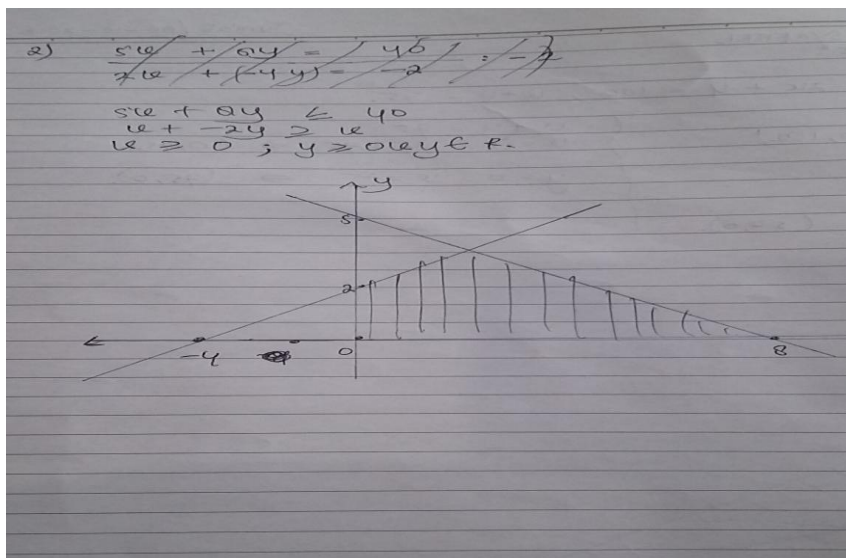 2) 5x + 8y = 40
x + (-4y) = -2
5x + 8y ≤ 40
x + -2y ≥ x
x ≥ 0 ; y ≥ 0 x y ∈ R.
y
5
2
-4 0 8